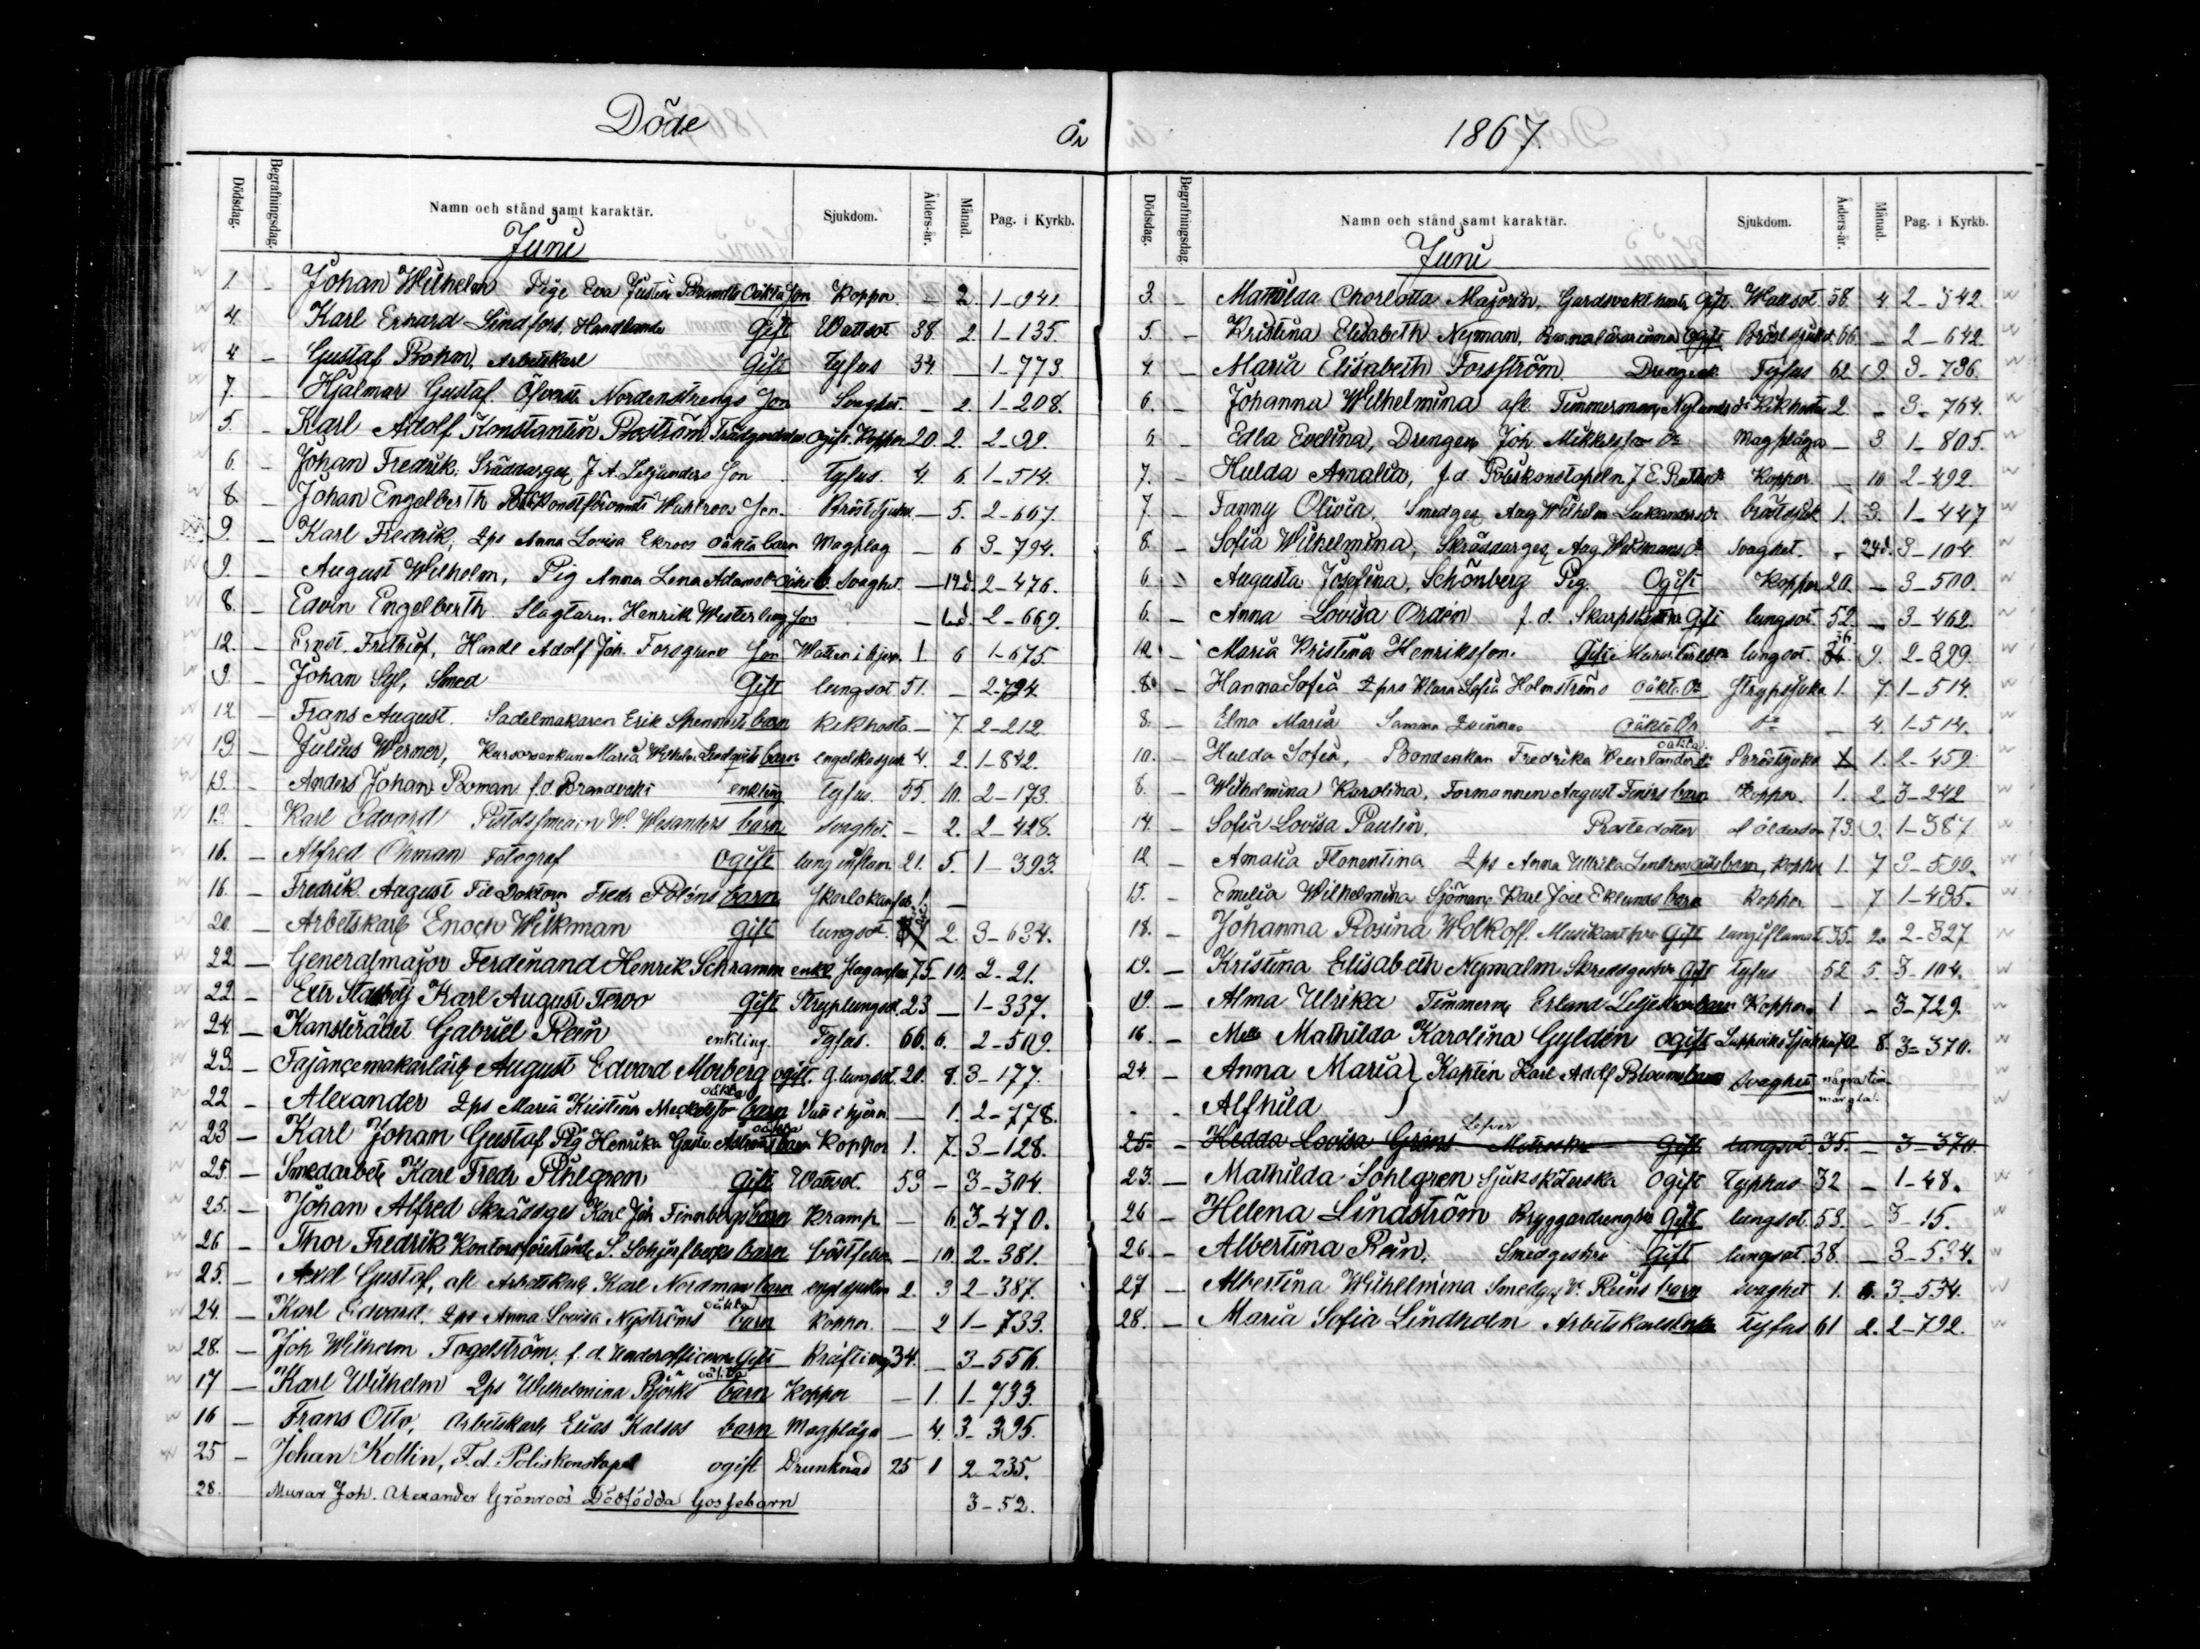 Döde
År
Dödsdag. Begrafningsdag. Namn och stånd samt karaktär. Sjukdom. Ålders-år. Månad. Pag. i Kyrkb.
Juni
1 - Johan Wilhelm Pige Eva Justin Brandts Oäkta Son Koppor - 2. 1-941
4. Karl Erhard Lindfors, Handlande Gift Wattsot 38. 2. 1-135.
4 - Gustaf Boman, Arbetskarl Gift Tyfus 34 - 1-773.
7. - Hjalmar Gustaf. Öfverste Nordenstrengs Son Svaghet. - 2. 1-208.
5. - Karl Adolf Konstantin Boström ogift. Koppor 20. 2. 2-99.
6. - Johan Fredrik. Skräddarges J. A. Seljanders Son Tyfus. 4. 6. 1-514.
8. - Johan Engelberth Wahlroos Son. Bröstsjukd. - 5. 2-667.
9. - Karl Fredrik, Qps Anna Lovisa Ekroos oäkta barn Magplåg - 6 3-794.
9. - August Wilhelm, Pig Anna Lena Adamsd. oäkt b. Svaghet. - 12d. 2-476.
8. - Edvin Engelberth. Slagtaren Henrik Westerling Son ? - 1.d. 2-669.
12. - Ernst Frithiof, Handl Adolf Joh. Forsgrens Son Watten i hjern. 1. 6 1-675.
9. - Johan Syl, Smed Gift lungsot 51. - 2-794
12 - Frans August. Sadelmakaren Erik Stenmans barn Kikhosta - 7 2-212.
13. - Julius Werner, Maria Wilhelm. Lindqvists barn engelskasjuk 4. 2. 1-842.
13. - Anders Johan Boman f.d. Brandvakt enkling Tyfus. 55. 10. 2-173.
13. - Karl Edvard Pistolsmeden W. Wesanders barn Svaghet. - 2. 2-428.
16. - Alfred Öhman Fotograf Ogift lung inflam. 21. 5. 1-393.
16. - Fredrik August Fil Doktorn Fredr Poléns barn 1. -
20. - Arbetskarls Enoch Wilkman Gift lungsot. 2. 3-634.
22 - Generalmajor Ferdinand Henrik Schramm enkl. Slaganfa 75. 10. 2-21.
22 - Extr Stadsbetj Karl August Tervo Gift Struplungsot. 23 - 1-337.
24. - Kanslirådet Gabriel Rein enkling. Tyfus. 66. 6. 2-509.
23. - Fajancemakarlärl August Edvard Moberg ogift. G. lungsot. 20. 8. 3-177.
22 - Alexander Qps Maria Kristina oäkta barn Vatt i hjern - 1. 2-778.
23 - Karl Johan Gustaf Pig Henrika Gust. oäkta barn Koppor 1. 7. 3-128.
25. - Smedarbet. Karl Fredr Pihlgren Gift Wattsot. 53 - 3-304.
25. - Johan Alfred Skrädsges Karl Joh Finnbergs barn Kramp - 6. 3-470.
26 - Thor Fredrik Kontorsföreståndr. S. barn Bröstfeber - 10. 2-381.
25. - Axel Gustaf, afl Arbetskarls Karl Nordman barn engl sjukan 2. 3 2-387.
24. - Karl Edvard. Qps Anna Lovisa Nyströms oäkta barn Koppor. - 2 1-733.
28. - Joh Wilhelm Fagelström, f.d. Underofficeren Gift Kräfta 34. - 3-556.
17 - Karl Wilhelm Qps Wilhelmina Björks oäkta barn Koppor - 1. 1-733.
16 - Frans Otto, Arbetskarls Elias Kalsos barn Magplåga - 4. 3-395.
25 - Johan Kollin, F.d. Poliskonstapel ogift Drunknad 25 1 2-235.
28. Murar Joh. Alexander Grönroos Dödfödda Gossebarn 3-52.
1867.
Dödsdag. Begrafningsdag. Namn och stånd samt karaktär. Sjukdom. Ålders-år. Månad. Pag. i Kyrkb.
Juni
3. - Mathilda Charlotta Majorin, Gardsvakt Gift Wattsot 58. 4 2-342.
5. - Kristina Elisabeth Nyman, Barnalärarinna Ogift Bröstsjukd. 66. - 2-642.
4. - Maria Elisabeth Forsström. Drengenk. Tyfus 62 9. 3-736.
6. - Johanna Wilhelmina afl. Timmerman Nylunds d. Kikhosta 2. - 3-764.
6. - Edla Evelina, Drengen Joh. Mikkelsson dr Magplåga - 3. 1-805.
7. - Hulda Amalia, f.d. Poliskonstapeln J E Koppor. - 10 2-492.
7. - Fanny Olivia, Smedges Aug Wilhelm bröstsjuk 1. 3. 1-447
8. - Sofia Wilhelmina, Skräddarges Aug Wikmans d. Svaghet. - 24d. 3-104
6. - Augusta Josefina, Schönberg Pig. Ogift Koppor 20. - 3-500.
6. - Anna Lovisa Orden f.d. Gift lungsot. 52. - 3-462.
12. - Maria Kristina Henriksson. Gift lungsot. 36 9. 2-899.
8. - Hanna Sofia Qprs Klara Sofia Holmströms oäkt. Dr Strypsjuka 1. 7. 1-514.
8. - Elna Maria Samma qvinnas oäkt Dr do - 4. 1-514.
10. - Hulda Sofia, Bondenkan Fredrika oäkta Bröstsjuka 1. 2-459.
8. - Wilhelmina Karolina, Formannen August barn Koppor. 1. 2. 3-242
14. - Sofia Lovisa Paulin, Prostedotter af ålderdom 73. 9. 1-387
12 - Amalia Florentina Qps Anna Ulrika oäkt barn, Koppor 1. 7 3-599.
15. - Emelia Wilhelmina Sjöman Karl Joel Eklunds barn Koppor - 7 1-435.
18. - Johanna Rosina Wolkoff. Musikants Gift lunginflamat 35. 2. 2-327
19. - Kristina Elisabeth Nymalm Skreddgeshu Gift Tyfus 52 5. 3-104.
19. - Alma Ulrika Timmerm. Erland barn Koppor. 1 - 3-729.
16. - Mlle Mathilda Karolina Gylden ogift 70. 8. 3-370.
24. - Anna Maria } Kaptén Karl Adolf barn Svaghet några tim.
- - Alfhild
25. - Hedda Lovisa Gift lungsot. 35. - 3-370.
23. - Mathilda Sohlgren Sjuksköterska Ogift Typhus 32 - 1-48.
26 - Helena Lindström Bryggardrengshu Gift lungsot. 53. - 3-15.
26. - Albertina Rein. Smedgeshu Gift lungsot. 38. - 3-534.
27 - Albertina Wilhelmina Smedges Reins barn Svaghet 1. 3-534.
28. - Maria Sofia Lindholm Arbetskarlsenka Tyfus 61 2. 2-792.